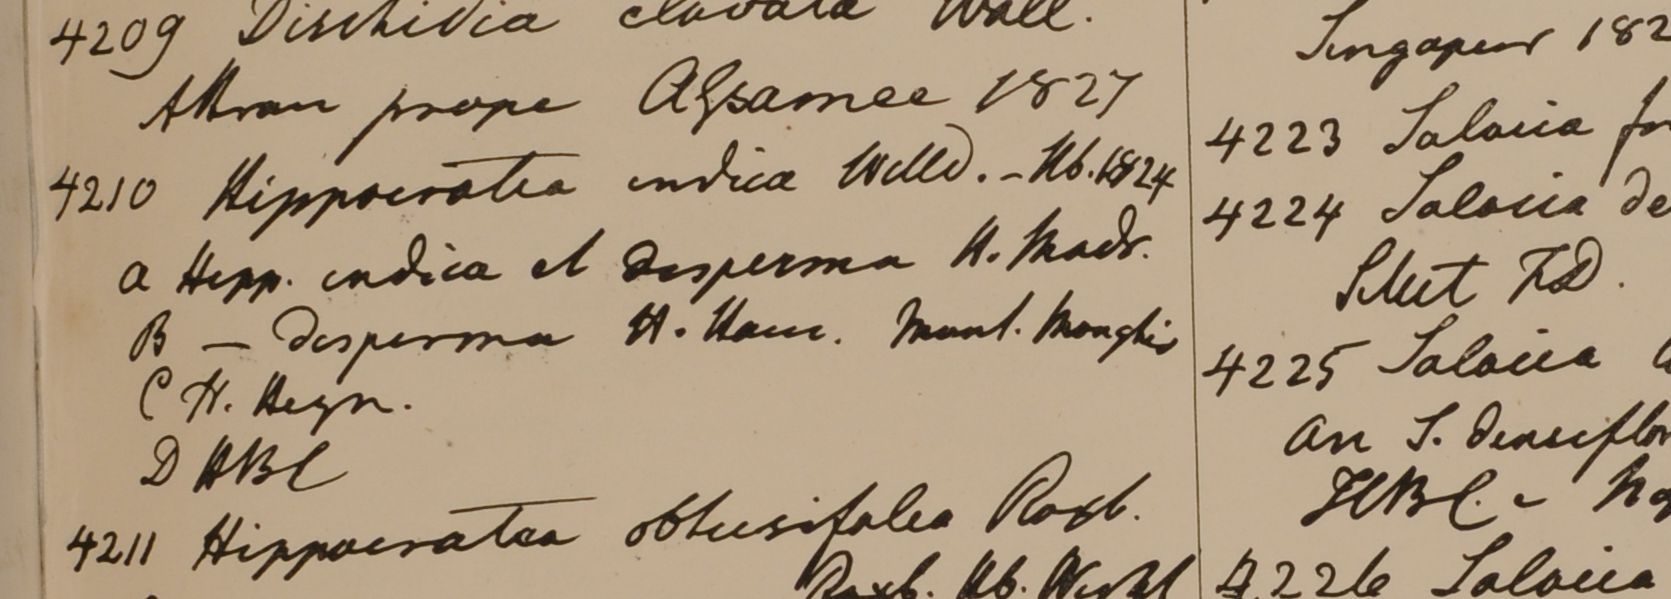 4209 Dischidia clavata Wall.
Attran prope 1827
4210 Hippocratea indica Willd. - Hb. 1824
a Hipp. indica et disperma H. Madr.
B — disperma H. Ham. Mont. Monghir
C H. Heyn.
D HBC
4211 Hippocratea obtusifolia Roxb.
Roxb. Hb. Wight
Singapur 182
4223 Salacia
4224 Salacia de
Silhet FD.
4225 Salacia
an S. densiflor
HBC. -
4226 Salacia